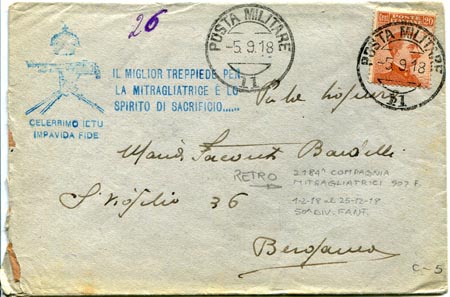 26
POSTA MILITARE
-5.9.18
11
POSTE
20
POSTA MILITARE
-5.9.18
11
IL MIGLIOR TREPPIEDE PER
LA MITRAGLIATRICE È LO
SPIRITO DI SACRIFICIO......
CELERRIMO ICTU
IMPAVIDA FIDE
RETRO
2181ª COMPAGNIA
MITRAGLIATRICI 907 F.
1-2-18 al 25-12-18
50ª DIV. FANT.
S. Vigilio 36
Bergamo
C-5